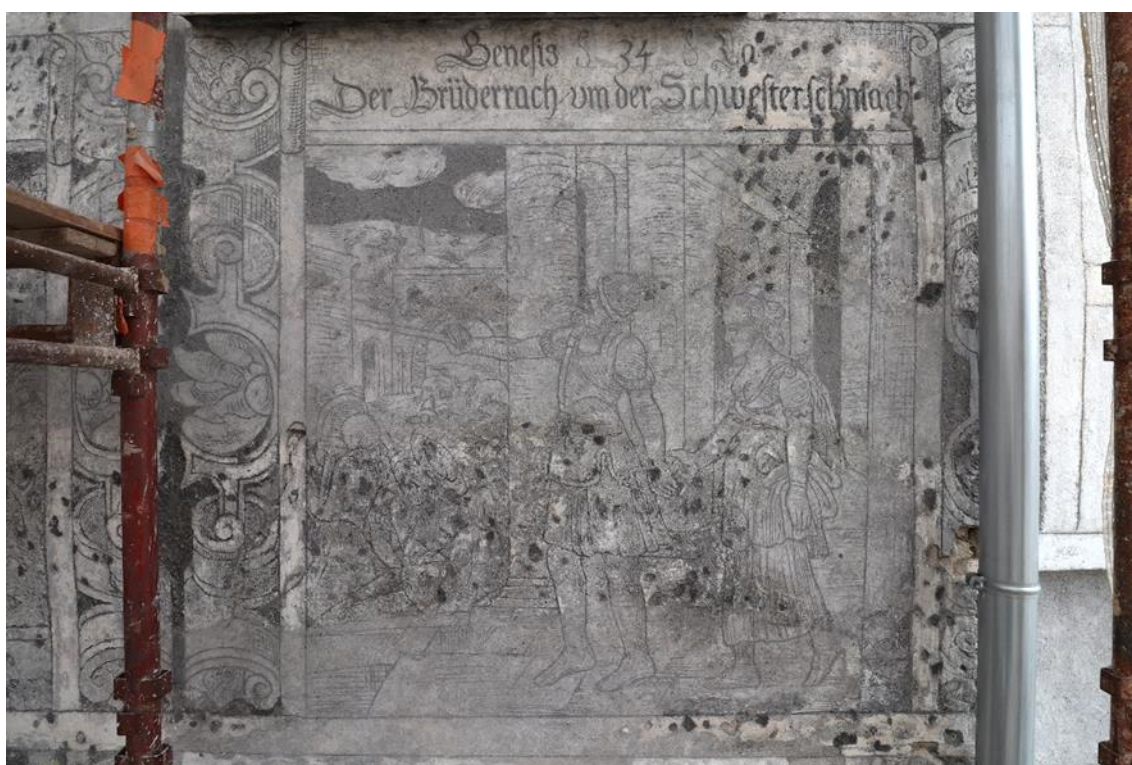 Genesis 34
Der Brüderrach vm der Schwester schmach